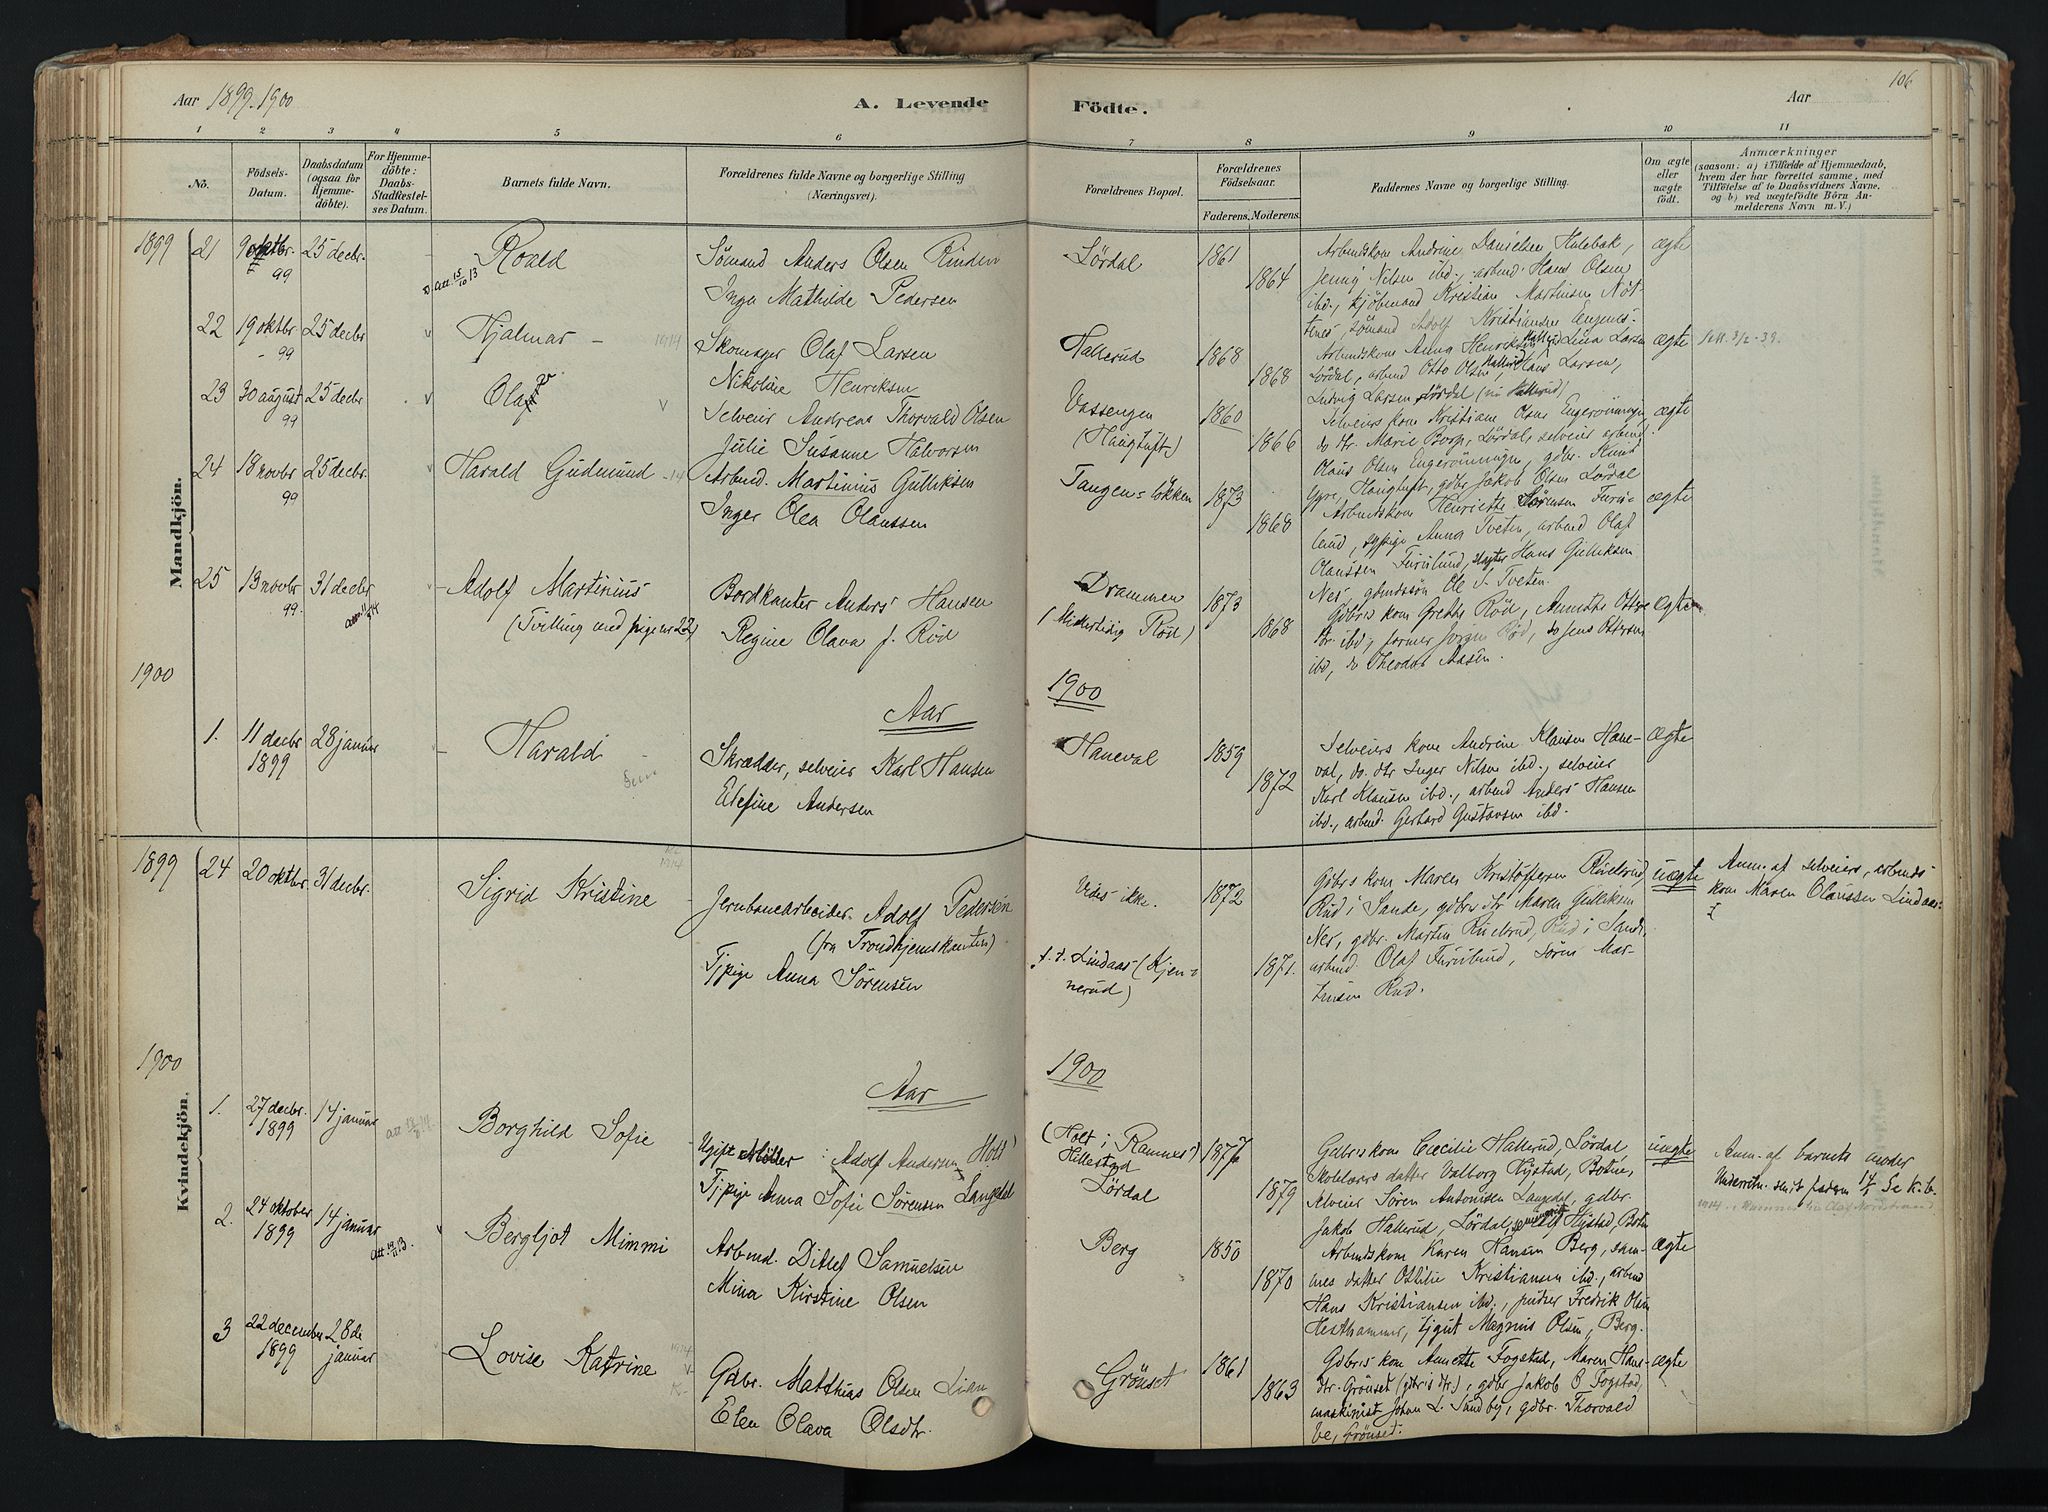 Aar 1899-1900
A. Levende
Födte.
Aar
106
1
2
3
4
5
6
7
8
9
10
11
No.
Födsels-Datum.
Daabsdatum (ogsaa for Hjemme-döbte).
For Hjemme-döbte: Daabs-Stadfæstel-ses Datum.
Barnets fulde Navn.
Forældrenes fulde Navne og borgerlige Stilling
(Næringsvei).
Forældrenes Bopæl.
Forældrenes Födselsaar.
Faderens. Moderens.
Faddernes Navne og borgerlige Stilling.
Om ægte eller uægte födt.
Anmærkninger
(saasom: a) i Tilfælde af Hjemmedaab,
hvem der har forrettet samme, med
Tilföielse af to Daabsvidners Navne,
og b) ved uægtefödte Börn An-
melderens Navn m. V.)
Mandkjön.
1899
21
9 oktbr. 99
25 decbr.
att. 15/10 13
Roald
Sömand Anders Olsen Rinden
Inga Mathilde Pedersen
Lördal
1861
1864
Arbmdskone Andrine Danielsen Holebak,
Jenny Nilsen ibd., arbmd. Hans Olsen
ibd., kjöbmand Kristian Martinsen Nöt-
ægte
22
19 oktbr - 99
25 decbr
Hjalmar -
1914
Skomager Olaf Larsen
Nikoline Henriksen
Hallerud
1868
1868
Arbmdskone Anna Henriksen Hallerud, Lina Larsen
Lördal, arbmd Otto Olsen Hallerud, Hans Larsen,
Ludvig Larsen Lördal (nu Hallerud)
ægte
23
30 august 99
25 decbr
Olaf v
Selveier Andreas Thorvald Olsen
Julie Susanne Halvorsen
Vassengen
(Haugtuft)
1860
1866
Selveiers kone Kristiane Olsen Engerönningen
do dtr. Marie Borg, Lördal, selveier arbmd.
Olaus Olsen Engerönningen, gdbr. Knut
Gyre, Haugtuft, gdbr Jakob Olsen Lördal
ægte
24
18 novbr 99
25 decbr.
Harald Gudmund -14
Arbmd. Martinius Gulliksen
Inger Olea Olaussen
Tangen = lökken
1873
1868
Arbmdskone Henriette Sörensen Furu-
lund, sypige Anna Tveten, arbmd Olaf
Olaussen Furulund, Hans Gulliksen
Nes, gbmdssön Ole S. Tveten.
ægte
25
13 novbr 99.
31 decbr
Adolf Martinius
(Tvilling med pige nr 22)
Bordkanter Anders Hansen
Regine Olava f. Röd
Drammen
(Midlertidig Röd)
1873
1868
Gdbrs kone Grethe Röd, Annette Otter
dtr. ibd, former Jörgen Röd, do Jens Ottersen
ibd, do Theodor Aasen.
ægte
1900
Aar
1900
1.
11 decbr 1899
28 januar
Harald
Skrædder, selveier Karl Hansen
Edefine Andersen
Haneval
1859
1872
Selveiers kone Andrine Klausen Hane-
val, do. dtr Inger Nilsen ibd., selveier
Karl Klausen ibd., arbmd Anders Hansen
ibd., arbmd. Gerhard Gustavsen ibd.
ægte
Kvindekjön.
1899
24
20 oktbr.
31 decbr.
1914
Sigrid Kristine
Jernbanearbeider Adolf Pedersen
(fra Trondhjemskanten)
Tjpige Anna Sörensen
Vides ikke.
t. t. Lindaas (Kjen-
nerud)
1872
1871.
Gdbrs kone Maren Kristoffersen Ruelsrud,
Rud i Sande, gdbrs dtr Maren Gulliksen
Nes, gdbr. Martin Ruelsrud, Rud i Sande,
arbmd. Olaf Furulund, Sören Mar-
tinsen Rud.
uægte
Anm. af selveier, arbmds
kone Maren Olaussen Lindaas
1900
Aar
1900
1.
27 decbr. 1899
14 januar
Borghild Sofie
Ugift Möller Adolf Andersen Holt
Tjpige Anna Sofie Sörensen Langedal
(Holt i Ramnes)
Hillestad
Lördal
1877
1879
Gdbrs kone Cæcilie Hallerud, Lördal,
Skolelærers datter Valborg Hystad, Botne,
Selveier Sören Antonisen Langedal, gdbr.
Jakob Hallerud, Lördal, Hystad, Botne
uægte
Anm. af barnets moder
2.
24 oktober 1899
14 januar
Bergljot Mimmi
Arbmd. Ditlef Samuelsen
Mina Kirstine Olsen
Berg
1850
1870
Arbmdskone Karen Hansen Berg, sam-
mes datter Ottilie Kristiansen ibd., arbmd
Hans Kristiansen ibd., pudser Fredrik Olsen
Hesthammer, tjgut Magnus Olsen, Berg.
ægte
3
22 december 1899
28de januar
Lovise Katrine
1914
Gdbr. Matthias Olsen Lian
Elen Olava Olsdtr.
Grönset
1861
1863
Gdbrs kone Annette Fogstad, Maren Hans-
dtr. Grönset (gdbrs dtr.), gdbr Jakob O Fogstad,
maskinist Johan L. Sundby, gdbr. Thorvald
Be, Grönset.
ægte